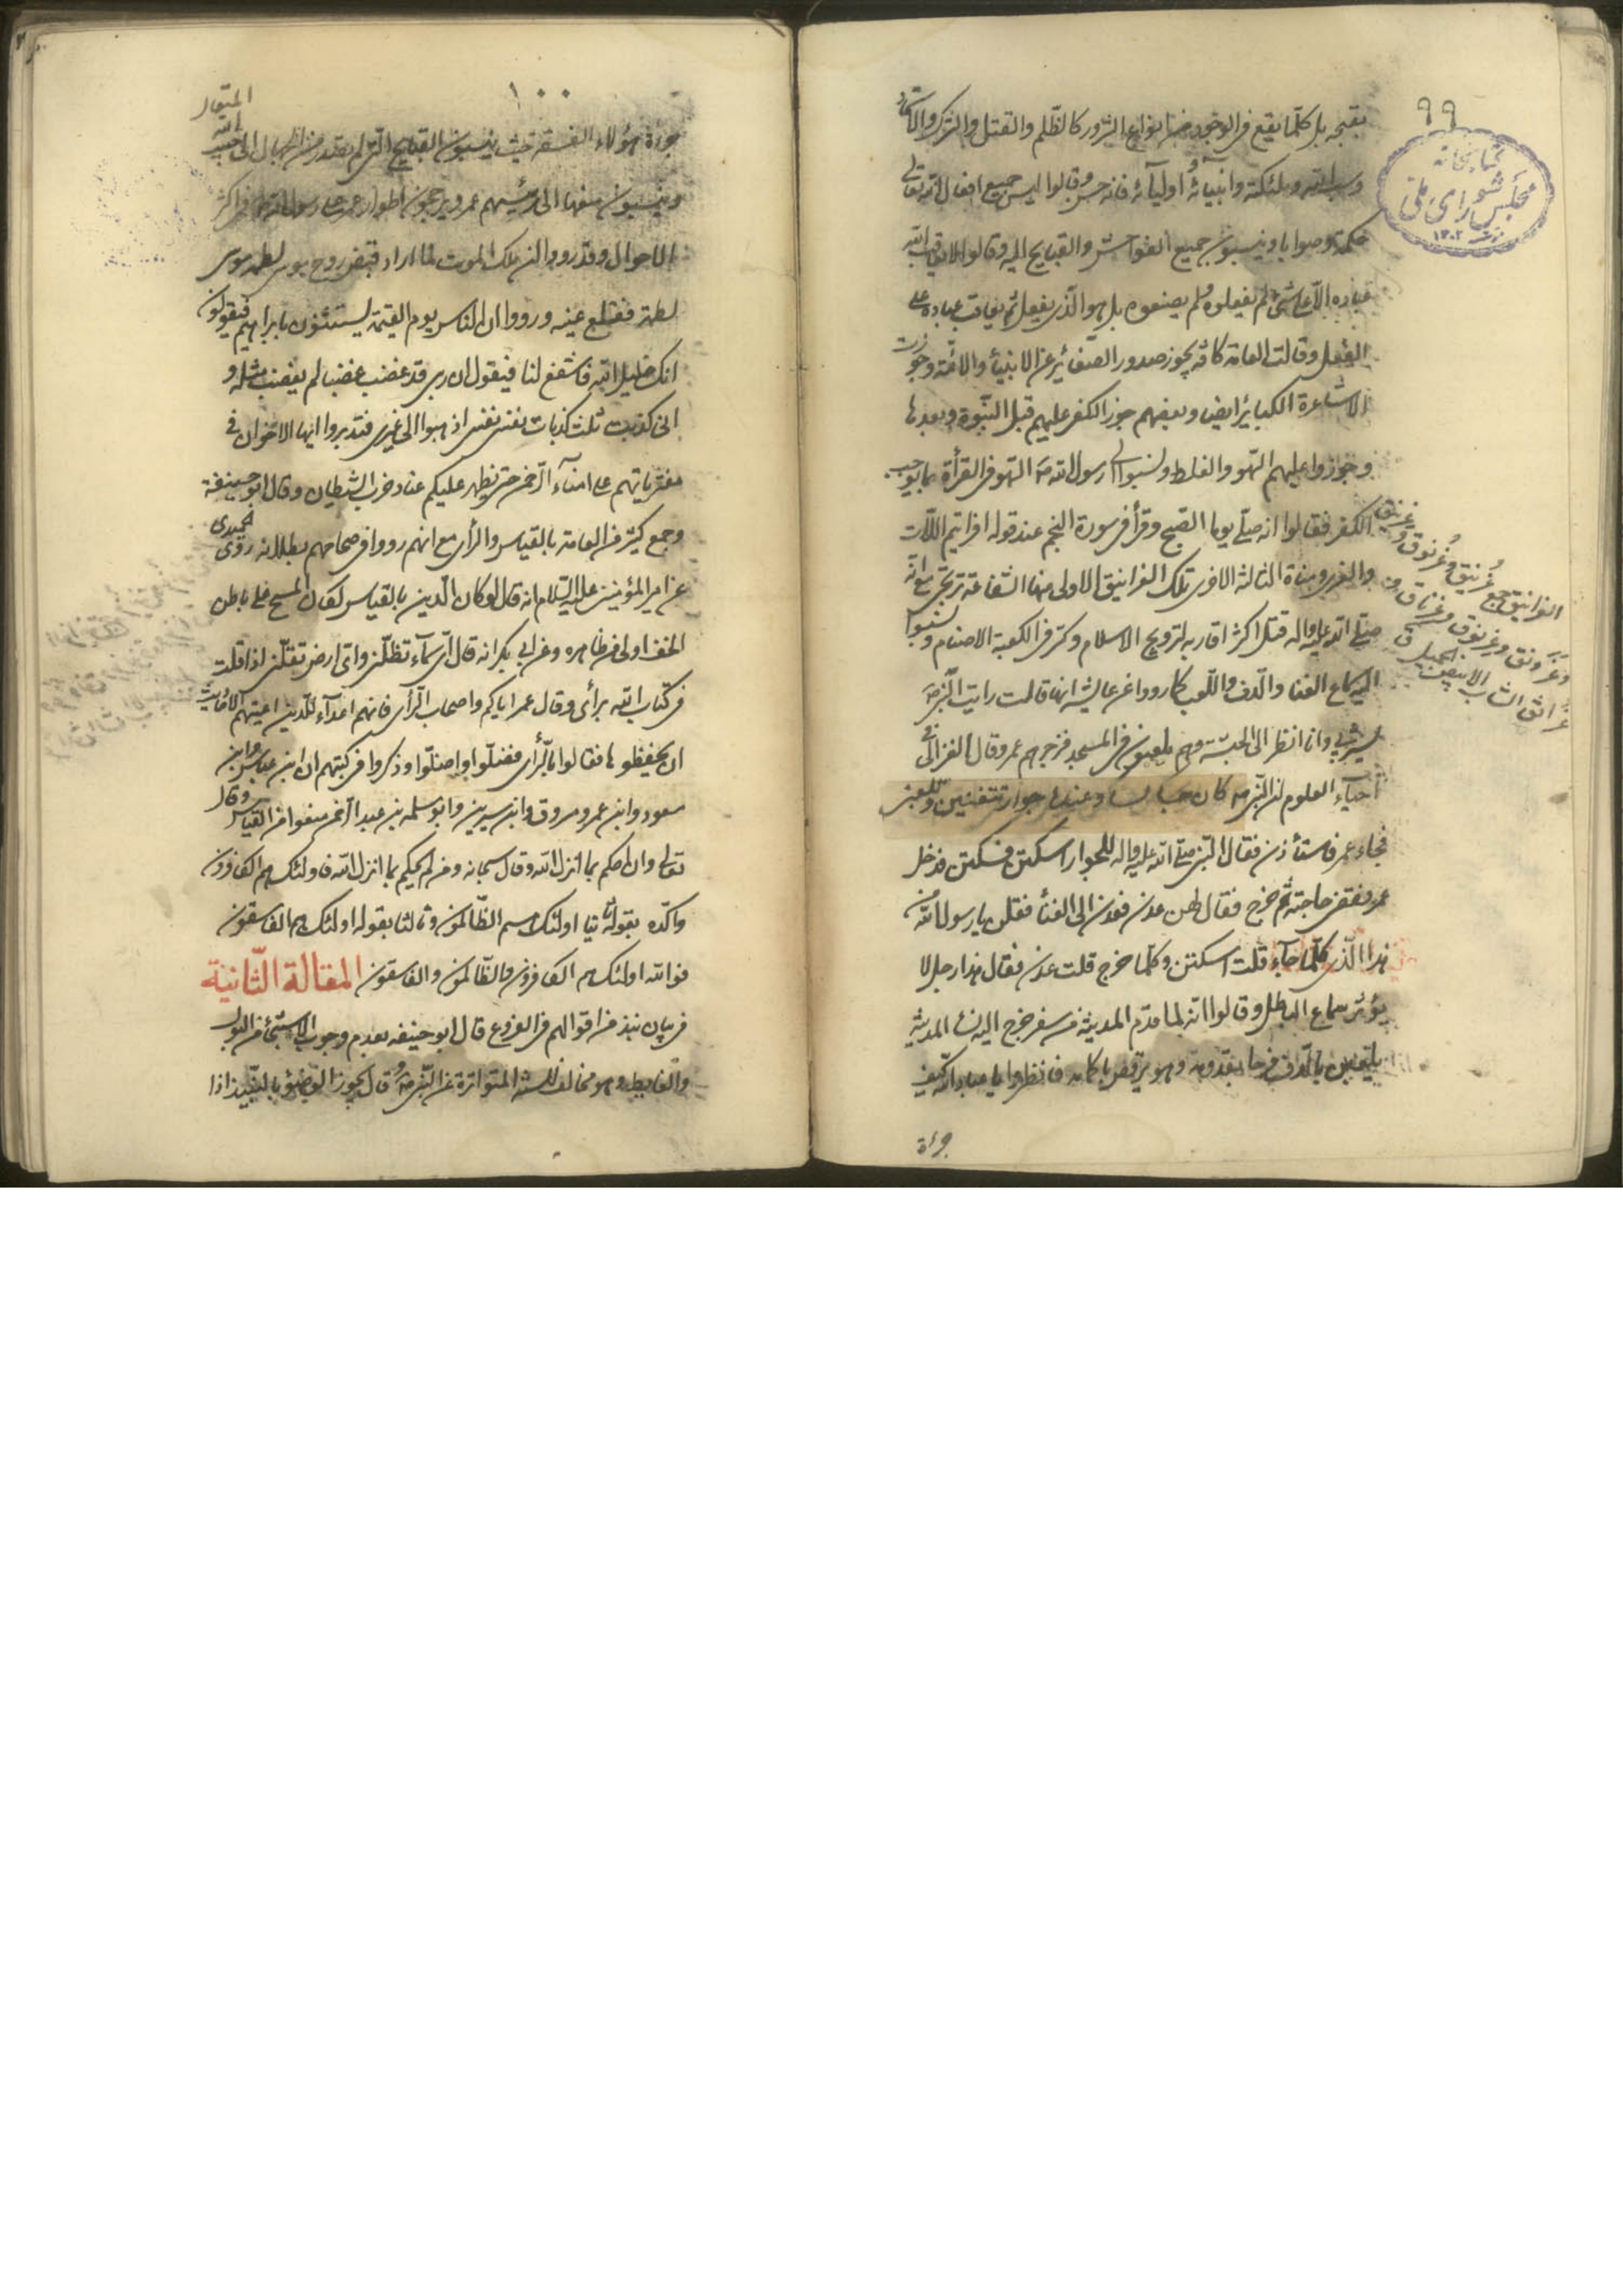 ٩٩
كتابخانه
مجلس شورای ملی
١٣٠٢
بقبحه بل كلما يقع فی الوجود من انواع الشرور كالظلم والقتل والشرك والالحاد
وسب الله وملئكته وانبيائه واوليائه فانه حسن وقالوا ليس جميع افعال الله تعالی
حكمة وصوابا وينسبون جميع الفواحش والقبايح اليه وقالوا لا يعاقب الله
عباده الا علی شیء لم يفعلوه ولم يصنعوه بل هو الذی يفعل ثم يعاقب عباده علی
الفعل وقالت العامة كافة يجوز صدور الصغائر عن الانبياء والائمة وجوزت
الاشاعرة الكبائر ايضا وبعضهم جوز الكفر عليهم قبل النبوة وبعدها
وجوزوا عليهم السهو والغلط ونسبوا الی رسول الله ص السهو فی القرأة بما يوجب
الكفر فقالوا انه صلی يوما الصبح وقرأ فی سورة النجم عند قوله افرايتم اللات
والعزی ومناة الثالثة الاخری تلك الغرانيق الاولی منها الشفاعة ترتجی مع انه
صلی الله عليه واله قتل اكثر اقاربه لترويج الاسلام وكسر فی الكعبة الاصنام ونسبوا
اليه سماع الغنا والدف واللعب كما رووا عن عايشة انها قالت رايت النبی ص
يسترنی وانا انظر الی الحبشة وهم يلعبون فی المسجد فزجرهم عمر وقال الغزالی فی
احياء العلوم ان النبی ص كان جالسا وعنده جوار تتغنين وتلعبن
فجاء عمر فاستأذن فقال النبی صلی الله عليه واله للجوار اسكتن فسكتن فدخل
عمر وقضی حاجته ثم خرج فقال لهن عدن فعدن الی الغناء فقلن يا رسول الله من
هذا الذی كلما جاء قلت اسكتن وكلما خرج قلت عدن فقال هذا رجل لا
يؤثر سماع الباطل وقالوا انه لما قدم المدينة من سفر خرج اليه نساء المدينة
يلعبن بالدف فرحا بقدومه وهو يرقص باكمامه فانظروا يا عباد الله كيف
جرأة
الغرانيق جمع غرنيق وغرنوق وغرنيق
وغرونق وغرنوق وغرناق و
غرانق الشاب الابيض الجميل ق
١٠٠
جرأة هؤلاء الفسقة حيث ينسبون القبايح التی لم يقدر من الجهال الی حبيب الله المتعال
وينسبون منعها الی رئيسهم عمر ويرجحون اطوار عمر علی رسول الله ص فی اكثر
الاحوال وقد رووا ان ملك الموت لما اراد قبض روح موسی لطمه موسی
لطمة فقلع عينه ورووا ان الناس يوم القيمة يستغيثون بابراهيم فيقولون
انك خليل الله فاشفع لنا فيقول ان ربی قد غضب غضبا لم يغضب مثله و
انی كذبت ثلث كذبات نفسی نفسی اذهبوا الی غيری فتدبروا ايها الاخوان فی
مفترياتهم علی امناء الرحمن حتی يظهر عليكم عناد حزب الشيطان وقال ابو حنيفة
وجمع كثير من العامة بالقياس والرأی مع انهم رووا فی صحاحهم بطلانه روی الحميدی
عن امير المؤمنين عليه السلام انه قال لو كان الدين بالقياس لكان المسح علی باطن
الخف اولی من ظاهره وعن ابی بكر انه قال ای سماء تظلنی وای ارض تقلنی اذا قلت
فی كتاب الله برأی وقال عمر اياكم واصحاب الرأی فانهم اعداء للدين اعيتهم الاحاديث
ان يحفظوها فقالوا بالرأی فضلوا واضلوا وذكروا فی كتبهم ان ابن عباس وابن
مسعود وابن عمر ومسروق وابن سيرين وابو سلمه بن عبد الرحمن منعوا من القياس وقال
تعالی وان احكم بما انزل الله وقال سبحانه ومن لم يحكم بما انزل الله فاولئك هم الكافرون
واكده بقوله ثانيا اولئك هم الظالمون وثالثا بقوله اولئك هم الفاسقون
فوالله اولئك هم الكافرون والظالمون والفاسقون المقالة الثانية
فی بيان نبذ من اقوالهم فی الفروع قال ابو حنيفه بعدم وجوب الاستنجاء من البول
والغايط وهو مخالف للسنة المتواترة عن النبی ص وقال يجوز الوضوء بالنبيذ اذا